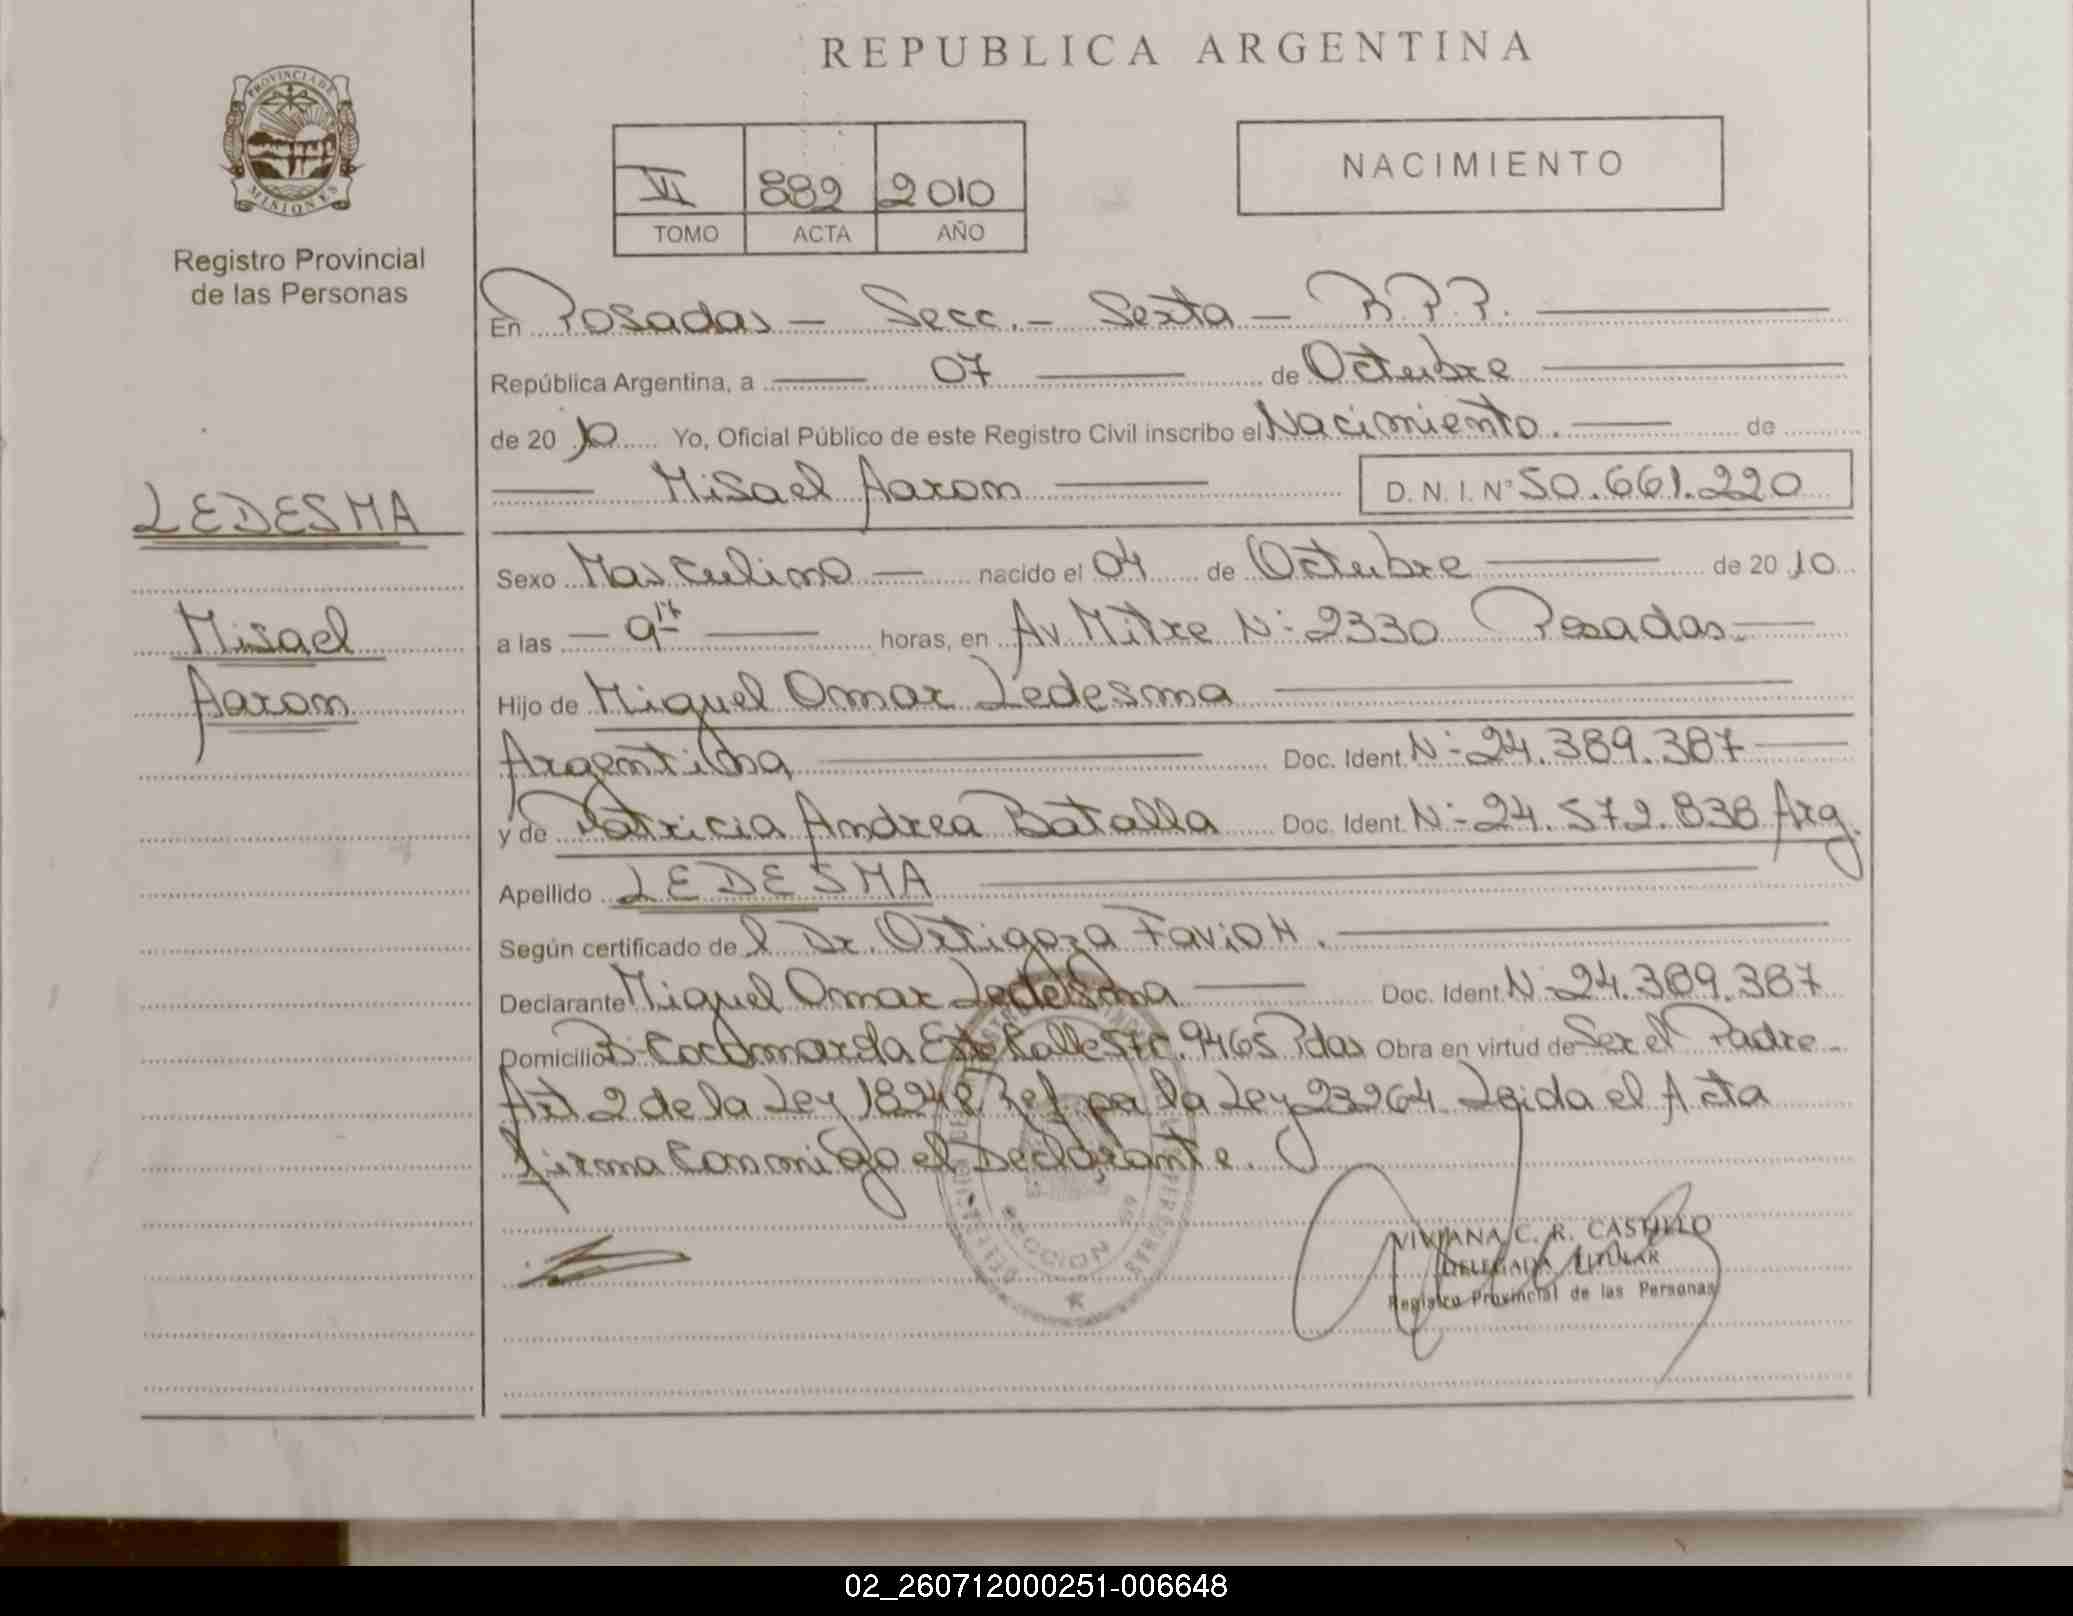 REPUBLICA ARGENTINA
PROVINCIA DE
MISIONES
Registro Provincial
de las Personas
VI 882 2010
TOMO ACTA AÑO
NACIMIENTO
En Posadas – Secc. – Sexta – R.P.P.
República Argentina, a 07 de Octubre
de 2010 Yo, Oficial Público de este Registro Civil inscribo el Nacimiento. de
Misael Aaron D. N. I. Nº 50.661.220
LEDESMA
Misael
Aaron
Sexo Masculino – nacido el 04 de Octubre de 2010
a las – 9 horas, en Av. Mitre Nº 2330 Posadas.
Hijo de Miguel Omar Ledesma
Argentina Doc. Ident. Nº 24.389.387
y de Patricia Andrea Batalla Doc. Ident. Nº 24.572.838 Arg.
Apellido LEDESMA
Según certificado del Dr. Ortigoza Favio H.
Declarante Miguel Omar Ledesma Doc. Ident. Nº 24.389.387
Domicilio Bº Cocomarola Este Calle 9465 Pdas Obra en virtud de Ser el Padre
Art 2 de la Ley 18248 Ref. por la Ley 23264 Leida el Acta
firma Conmigo el Declarante.
SECCION
VIVIANA C. R. CASTILLO
DELEGADA TITULAR
Registro Provincial de las Personas
02_260712000251-006648